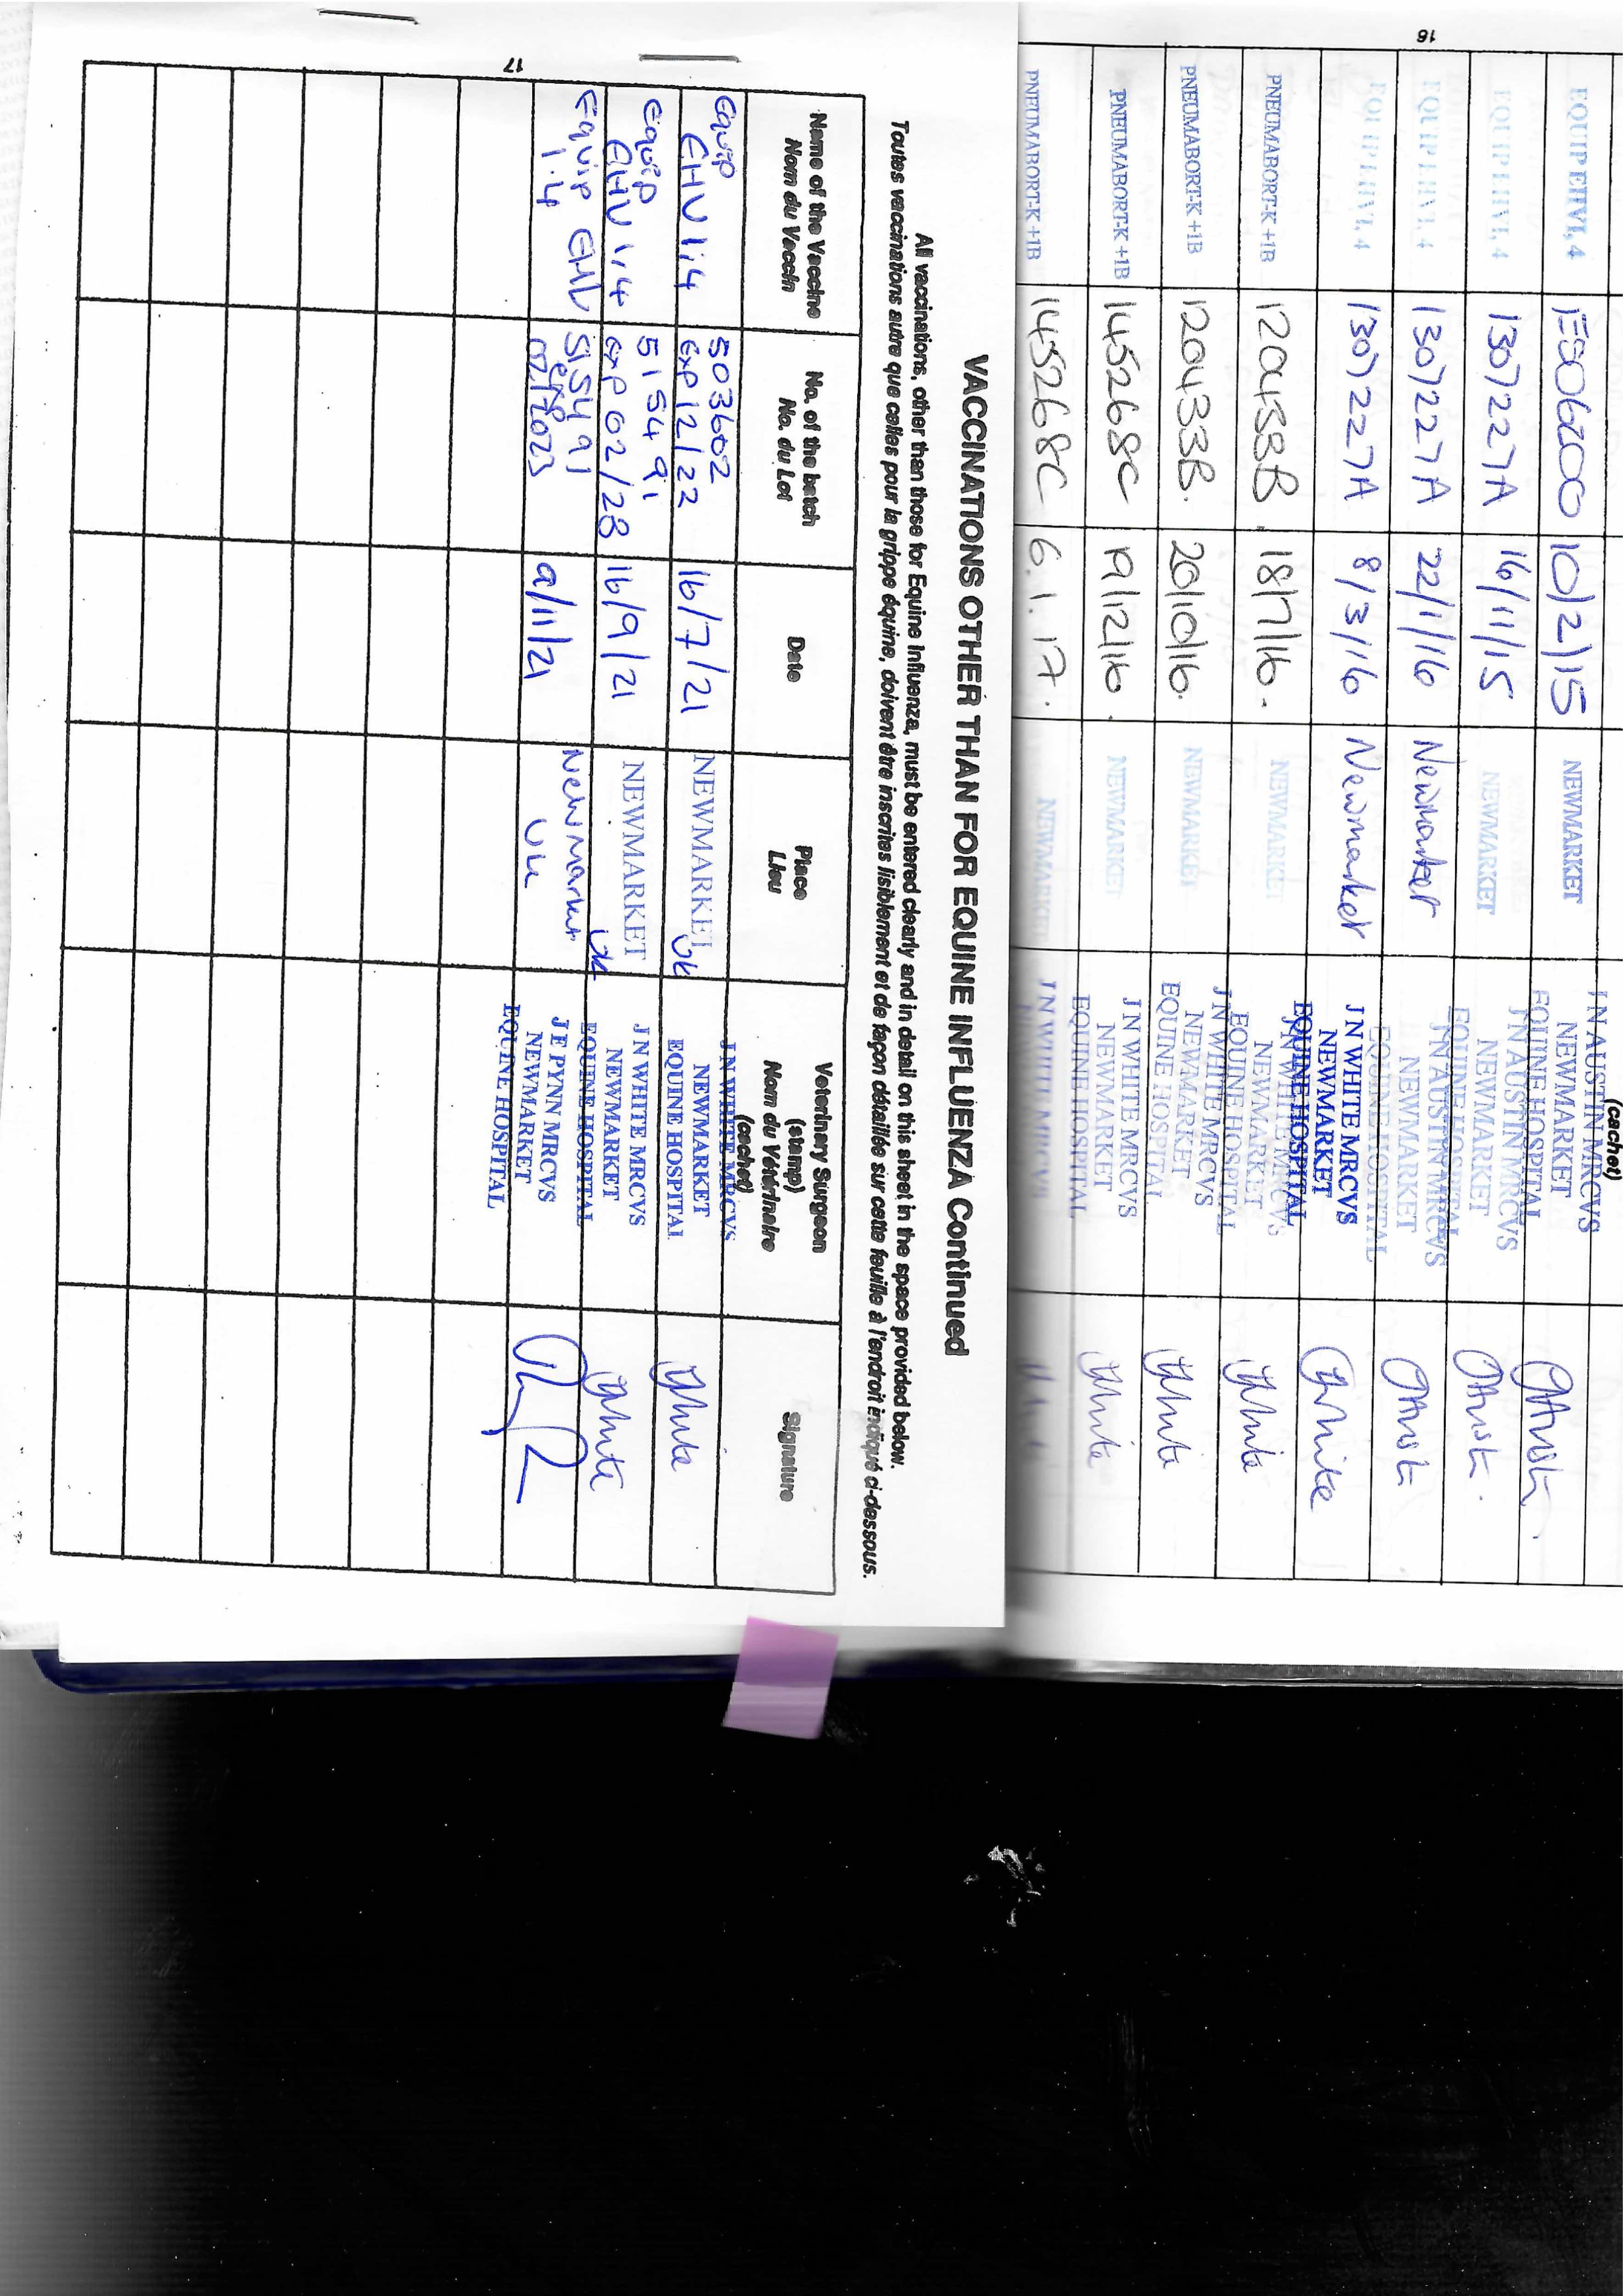 (cachet)
EQUIP EHV1,4 E506200 10/2/15 NEWMARKET J N AUSTIN MRCVS
NEWMARKET
EQUINE HOSPITAL
EQUIP EHV1,4 13072227A 16/11/15 NEWMARKET J N AUSTIN MRCVS
NEWMARKET
EQUINE HOSPITAL
EQUIP EHV1, 4 13072227A 22/1/16 Newmarket J N AUSTIN MRCVS
NEWMARKET
EQUINE HOSPITAL
EQUIP EHV1, 4 13072227A 8/3/16 Newmarket J N WHITE MRCVS
NEWMARKET
EQUINE HOSPITAL
PNEUMABORT-K +1B 120433B 18/7/16. NEWMARKET J N WHITE MRCVS
NEWMARKET
EQUINE HOSPITAL
PNEUMABORT-K +1B 120433B. 20/10/16. NEWMARKET J N WHITE MRCVS
NEWMARKET
EQUINE HOSPITAL
PNEUMABORT-K +1B 145268C 19/12/16. NEWMARKET J N WHITE MRCVS
NEWMARKET
EQUINE HOSPITAL
PNEUMABORT-K +1B 145268C 6.1.17. NEWMARKET J N WHITE MRCVS
16
VACCINATIONS OTHER THAN FOR EQUINE INFLUENZA Continued
All vaccinations, other than those for Equine Influenza, must be entered clearly and in detail on this sheet in the space provided below.
Toutes vaccinations autre que celles pour la grippe équine, doivent être inscrites lisiblement et de façon détaillée sur cette feuille à l'endroit indiqué ci-dessous.
Name of the Vaccine No. of the batch Date Place Veterinary Surgeon Signature
Nom du Vaccin No. du Lot Lieu (stamp)
Nom du Vétérinaire
(cachet)
Equip 503602 J N WHITE MRCVS
EHV 1;4 exp 12/22 16/7/21 NEWMARKET UK NEWMARKET
EQUINE HOSPITAL
Equip 515491 J N WHITE MRCVS
EHV 1,4 exp 02/23 16/9/21 NEWMARKET UK NEWMARKET
EQUINE HOSPITAL
Equip EHV 515491 Newmarket J E PYNN MRCVS
1.4 exp 02/2023 9/11/21 UK NEWMARKET
EQUINE HOSPITAL
17